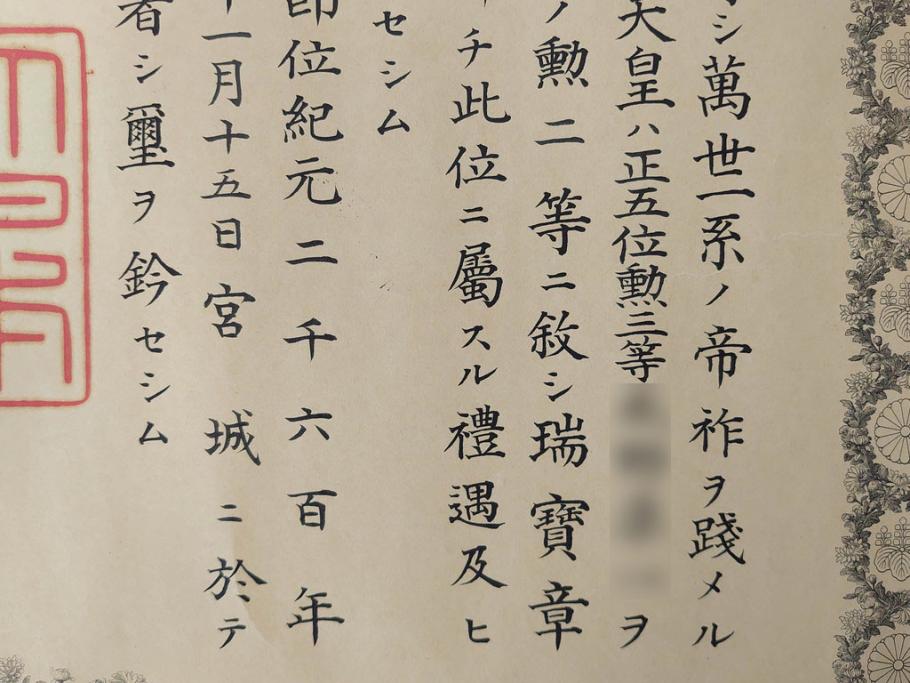 シ萬世一系ノ帝祚ヲ踐メル
天皇ハ正五位勲三等
ヲ
ノ勲二等ニ敘シ瑞寶章
チ此位ニ屬スル禮遇及ヒ
セシム
即位紀元二千六百年
十一月十五日宮城ニ於テ
者シ璽ヲ鈐セシム